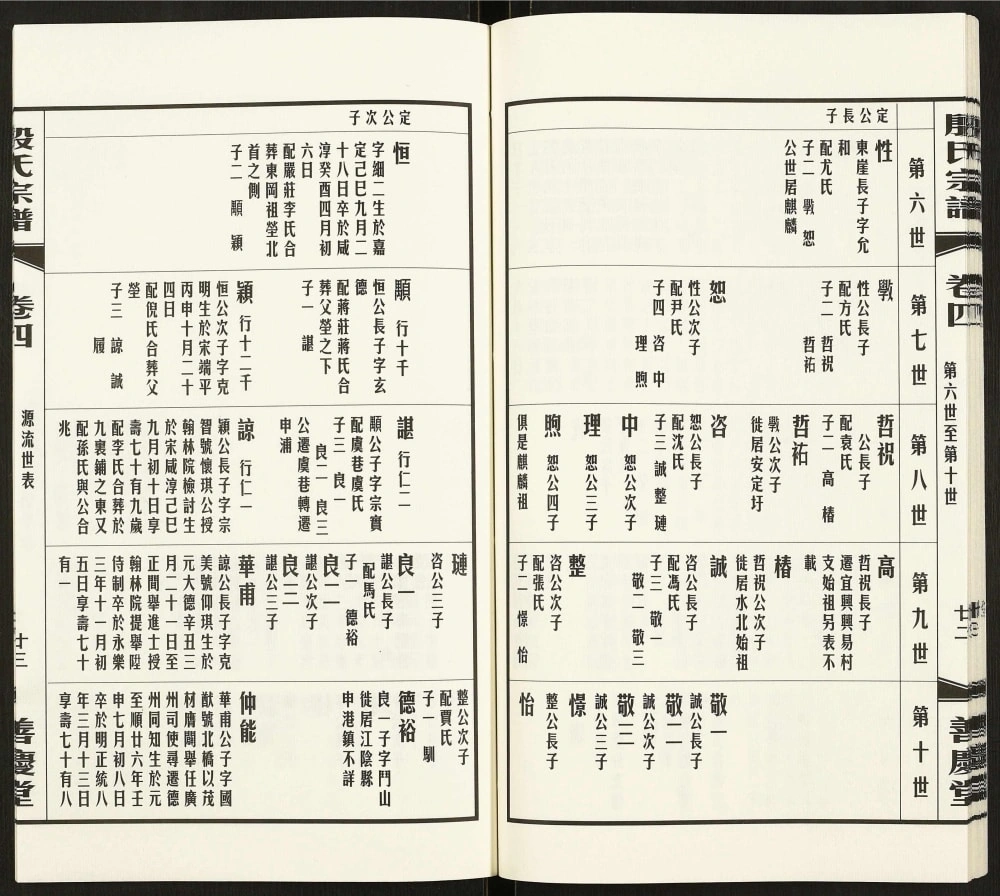 殷氏宗譜
卷四
第六世至第十世
廿二
善慶堂
第六世
第七世
第八世
第九世
第十世
定公長子
性
東崖長子字允
和
配尤氏
子二 斆 恕
公世居麒麟
斆
性公長子
配方氏
子二 哲祝
哲祐
恕
性公次子
配尹氏
子四 咨 中
理 煦
哲祝
公長子
配袁氏
子二 高 椿
哲祐
斆公次子
徙居安定圩
咨
恕公長子
配沈氏
子三 誠 整 璉
中 恕公次子
理 恕公三子
煦 恕公四子
俱是麒麟祖
高
哲祝長子
遷宜興興易村
支始祖另表不
載
椿
哲祝公次子
徙居水北始祖
誠
咨公長子
配馮氏
子三 敬一
敬二 敬三
整
咨公次子
配張氏
子二 憬 怡
敬一
誠公長子
敬二
誠公次子
敬三
誠公三子
憬
整公長子
怡
定公次子
恒
字細二生於嘉
定己巳九月二
十八日卒於咸
淳癸酉四月初
六日
配嚴莊李氏合
葬東岡祖塋北
首之側
子二 順 穎
順 行十千
恒公長子字玄
德
配蔣莊蔣氏合
葬父塋之下
子一 諶
穎 行十二千
恒公次子字克
明生於宋端平
丙申十月二十
四日
配倪氏合葬父
塋
子三 諒 誠
履
諶 行仁二
順公子字宗實
配虞巷虞氏
子三 良一
良二 良三
公遷虞巷轉遷
申浦
諒 行仁一
穎公長子字宗
智號懷琪公授
翰林院檢討生
於宋咸淳己巳
九月初十日享
壽七十有九歲
配李氏合葬於
九裏鋪之東又
配孫氏與公合
兆
璉
咨公三子
良一
諶公長子
配馬氏
子一 德裕
良二
諶公次子
良三
諶公三子
華甫
諒公長子字克
美號仰琪生於
元大德辛丑三
月二十一日至
正間舉進士授
翰林院提舉陞
侍制卒於永樂
三年十一月初
五日享壽七十
有一
整公次子
配賈氏
子一 馴
德裕
良一子字門山
徙居江陰縣
申港鎮不詳
仲能
華甫公子字國
猷號北橋以茂
材膺闢舉任廣
州司使尋遷德
州同知生於元
至順廿六年壬
申七月初八日
卒於明正統八
年三月十三日
享壽七十有八
殷氏宗譜
卷四
源流世表
廿三
善慶堂